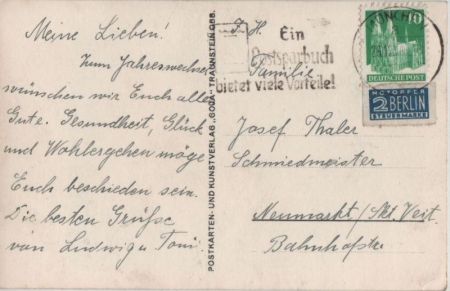 Meine Lieben!
Zum Jahreswechsel
wünschen wir Euch alles
Gute. Gesundheit, Glück
und Wohlergehen möge
Euch beschieden sein.
Die besten Grüsse
von Ludwig u Toni.
POSTKARTEN- UND KUNSTVERLAG „GODA“ TRAUNSTEIN OBB.
F. H.
Familie
Josef Thaler
Schmiedmeister
Neumarkt/Skt. Veit
Bahnhofstr
Ein
Postsparbuch
bietet viele Vorteile!
MÜNCH
10
DEUTSCHE POST
NOTOPFER
2 BERLIN
STEUERMARKE